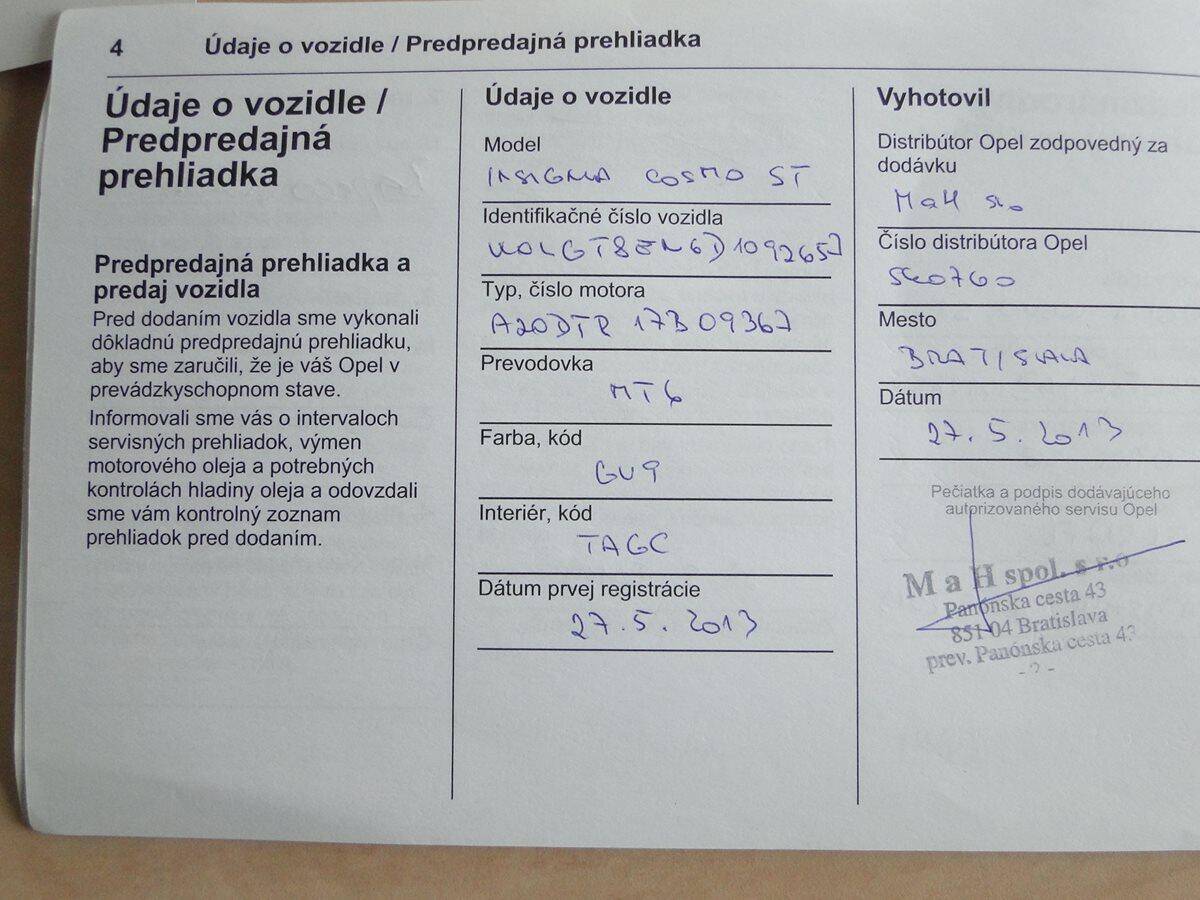 4
Údaje o vozidle / Predpredajná prehliadka
Údaje o vozidle /
Predpredajná
prehliadka
Predpredajná prehliadka a
predaj vozidla
Pred dodaním vozidla sme vykonali
dôkladnú predpredajnú prehliadku,
aby sme zaručili, že je váš Opel v
prevádzkyschopnom stave.
Informovali sme vás o intervaloch
servisných prehliadok, výmen
motorového oleja a potrebných
kontrolách hladiny oleja a odovzdali
sme vám kontrolný zoznam
prehliadok pred dodaním.
Údaje o vozidle
Model
INSIGNIA COSMO ST
Identifikačné číslo vozidla
Typ, číslo motora
A20DTR 17B09367
Prevodovka
MT6
Farba, kód
GU9
Interiér, kód
TAGC
Dátum prvej registrácie
27.5.2013
Vyhotovil
Distribútor Opel zodpovedný za
dodávku
MaH
Číslo distribútora Opel
SK0760
Mesto
BRATISLAVA
Dátum
27.5.2013
Pečiatka a podpis dodávajúceho
autorizovaného servisu Opel
M a H spol. s r.o
Panónska cesta 43
851 04 Bratislava
prev. Panónska cesta 43
- 2 -